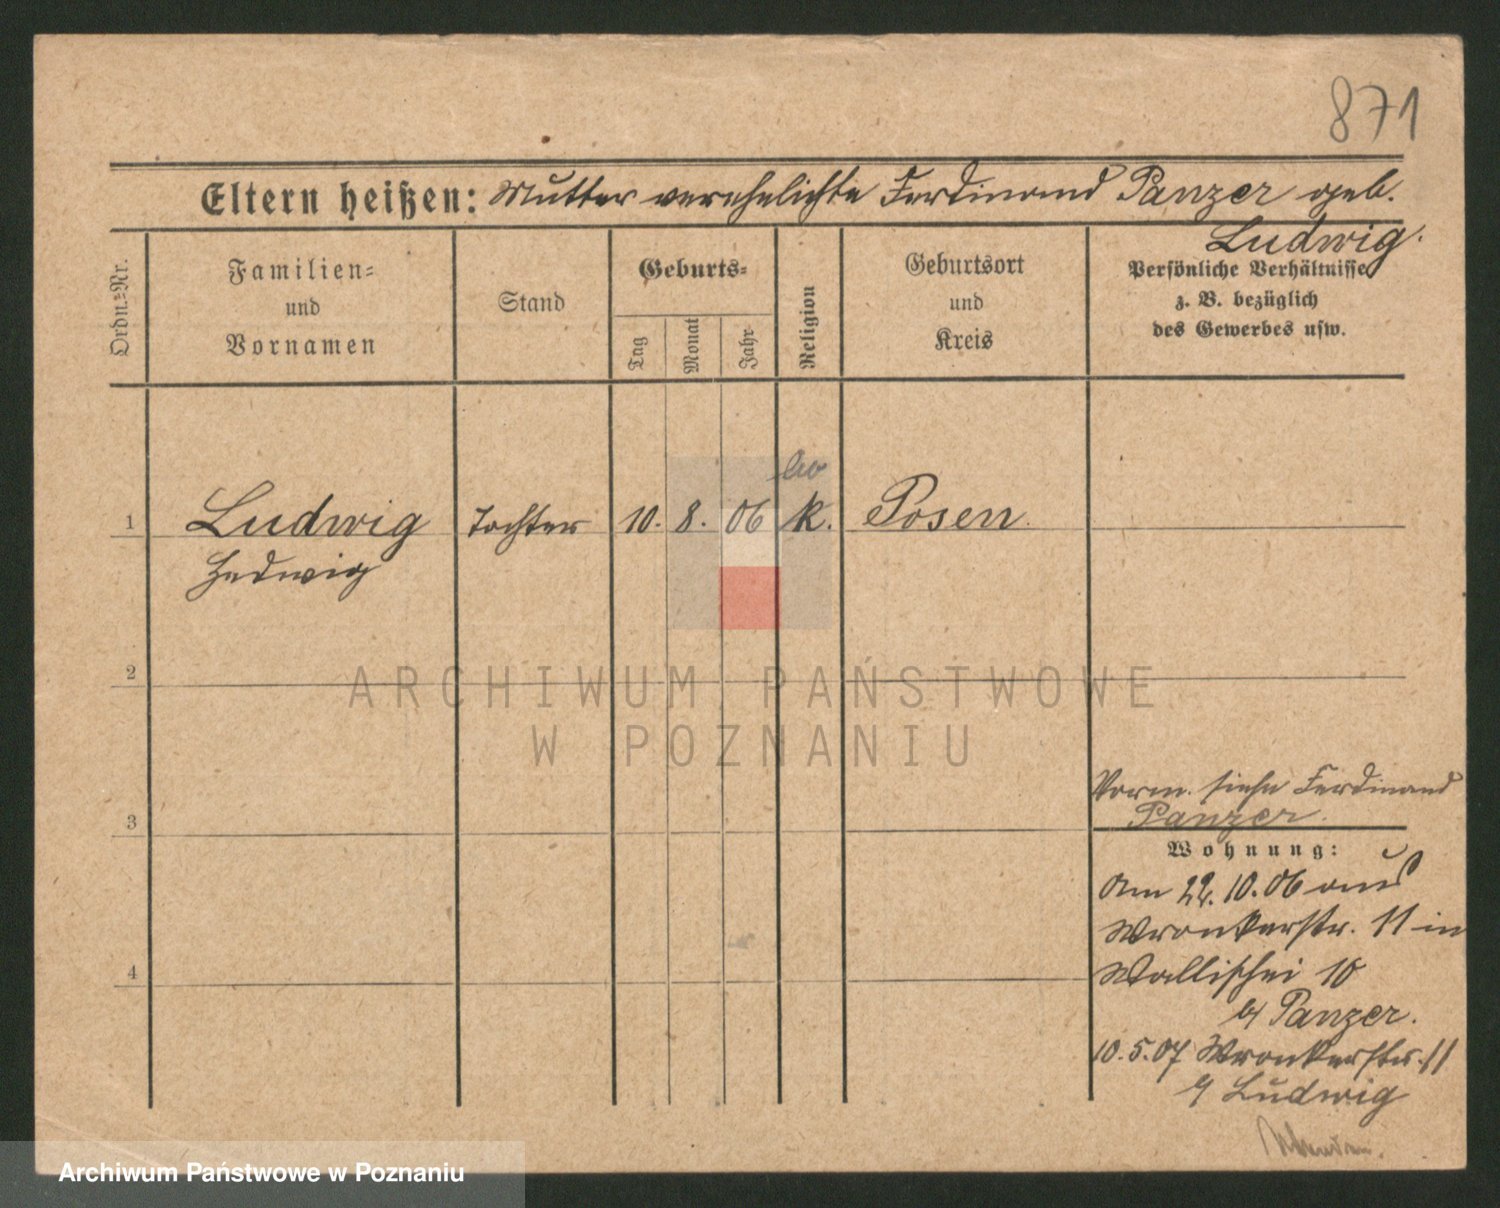 871
Eltern heißen: Mutter verehelichte Ferdinand Panzer geb.
Ludwig.
Ordn.-Nr.
Familien-
und
Vornamen
Stand
Geburts-
Tag
Monat
Jahr
Religion
Geburtsort
und
Kreis
Persönliche Verhältnisse
z. B. bezüglich
des Gewerbes usw.
1
Ludwig
Hedwig
Tochter
10.
8.
06
k.
Posen
2
ARCHIWUM PAŃSTWOWE
W POZNANIU
3
4
Vorm. siehe Ferdinand
Panzer.
Wohnung:
Am 22. 10. 06 aus
Wronkerstr. 11 in
Wallischei 10
b/ Panzer.
10. 5. 07 Wronkerstr. 11
b/ Ludwig
Archiwum Państwowe w Poznaniu